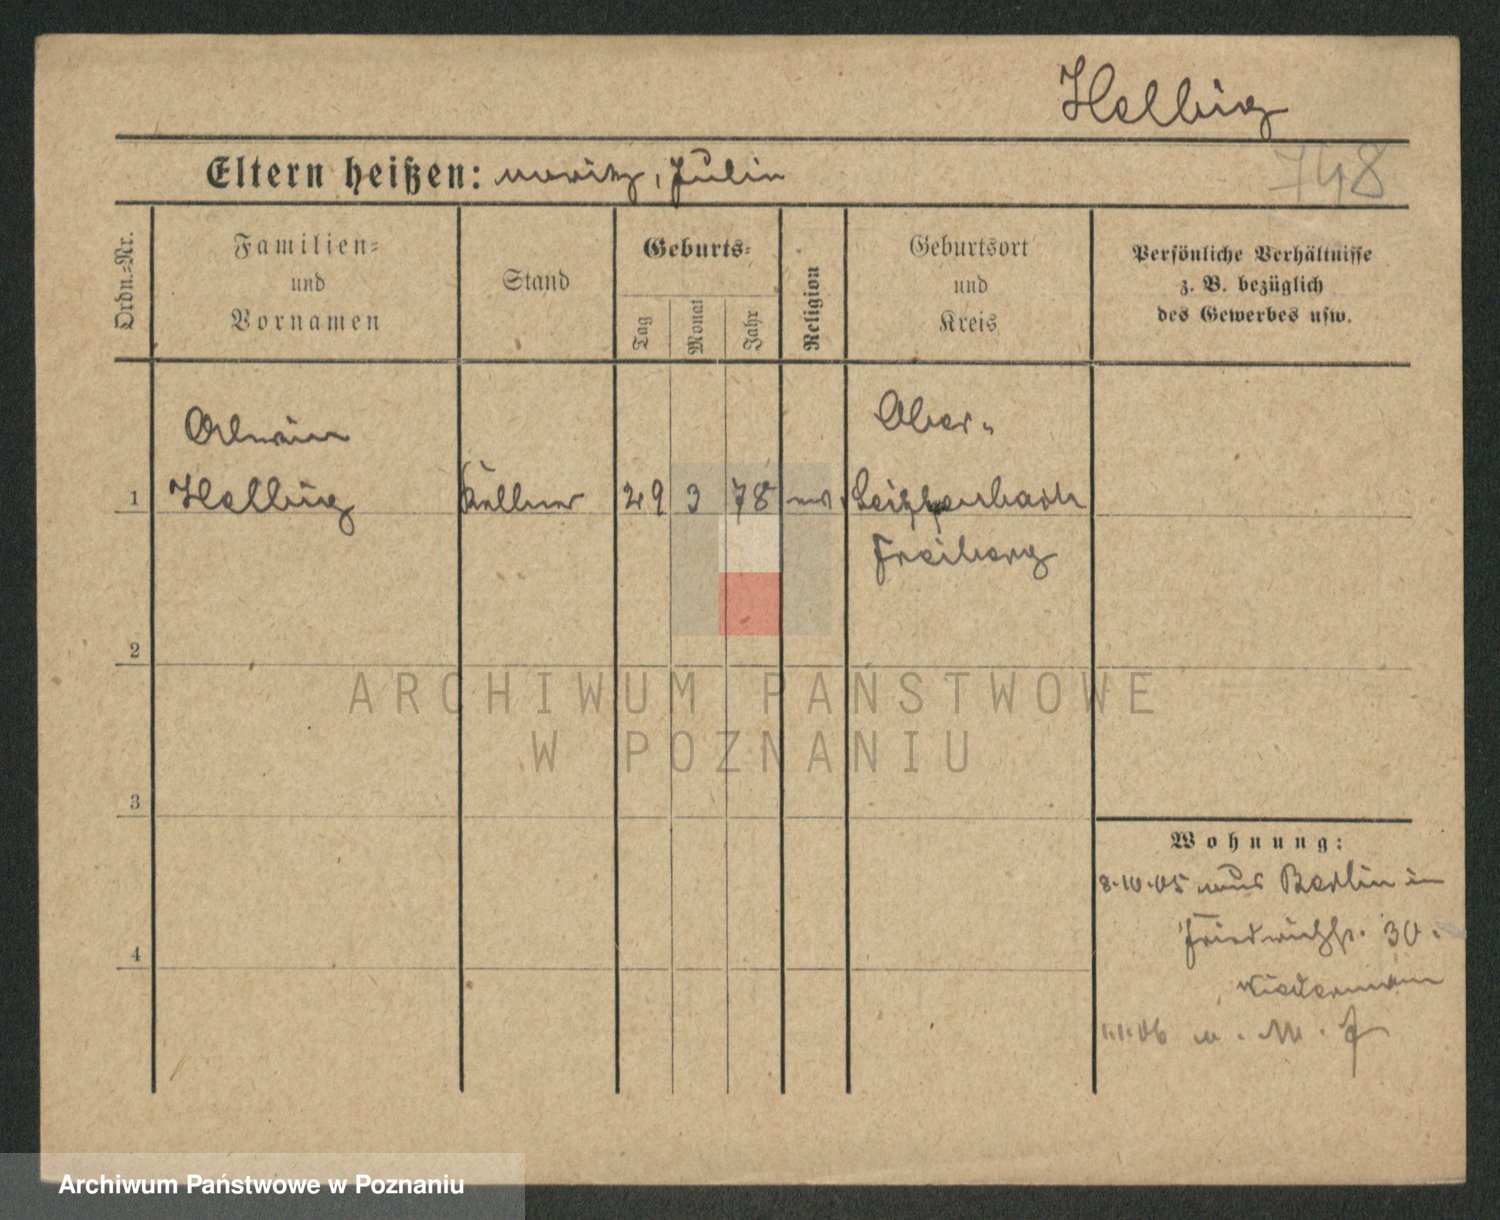 Helbig
Eltern heißen: Moritz, Julie
748
Ordn.=Nr.
Familien=
und
Vornamen
Stand
Geburts=
Tag
Monat
Jahr
Religion
Geburtsort
und
Kreis
Persönliche Verhältnisse
z. B. bezüglich
des Gewerbes usw.
Ober-
1 Helbig Kellner 29 3 78
Freiberg
2
ARCHIWUM PAŃSTWOWE
W POZNANIU
3
Wohnung:
8.10.05 aus Berlin in
Friedrichstr. 30.
4
1.1.06
Archiwum Państwowe w Poznaniu